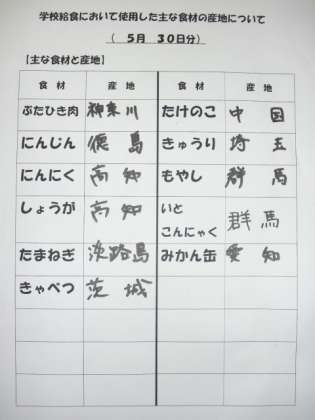 学校給食において使用した主な食材の産地について
( 5月 30日分)
【主な食材と産地】
食 材 産 地 食 材 産 地
ぶたひき肉 神奈川 たけのこ 中 国
にんじん 徳 島 きゅうり 埼 玉
にんにく 高 知 もやし 群 馬
しょうが 高 知 いと
こんにゃく 群 馬
たまねぎ 淡路島 みかん缶 愛 知
きゃべつ 茨 城